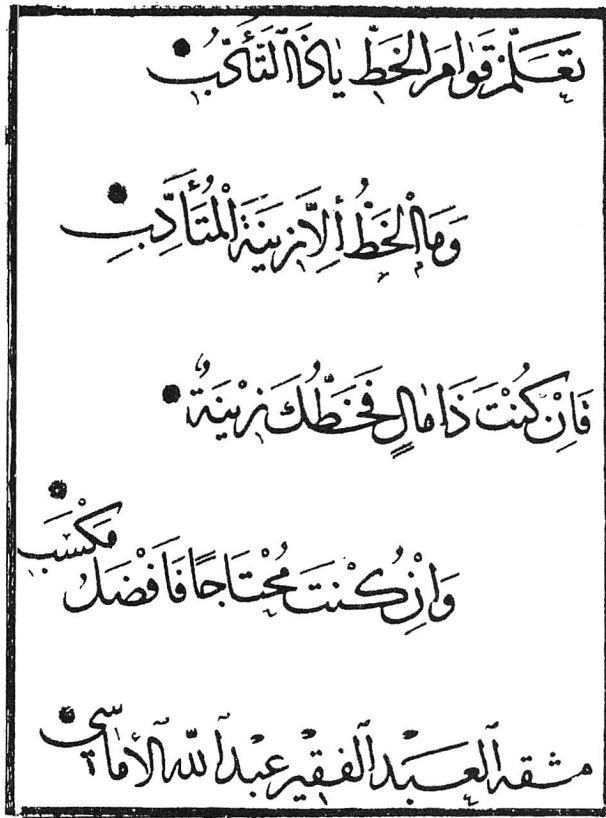 تَعَلَّمْ قَوَامَ الخَطِّ يَا ذَا التَّأَدُّبِ
وَمَا الْخَطُّ إِلَّا زِينَةُ الْمُتَأَدِّبِ
فَاِنْ كُنْتَ ذَا مَالٍ فَخَطُّكَ زِينَةٌ
وَاِنْ كُنْتَ مُحْتَاجًا فَاَفْضَلُ مَكْسَبِ
مشقه العبد الفقير عبد الله الأماسي